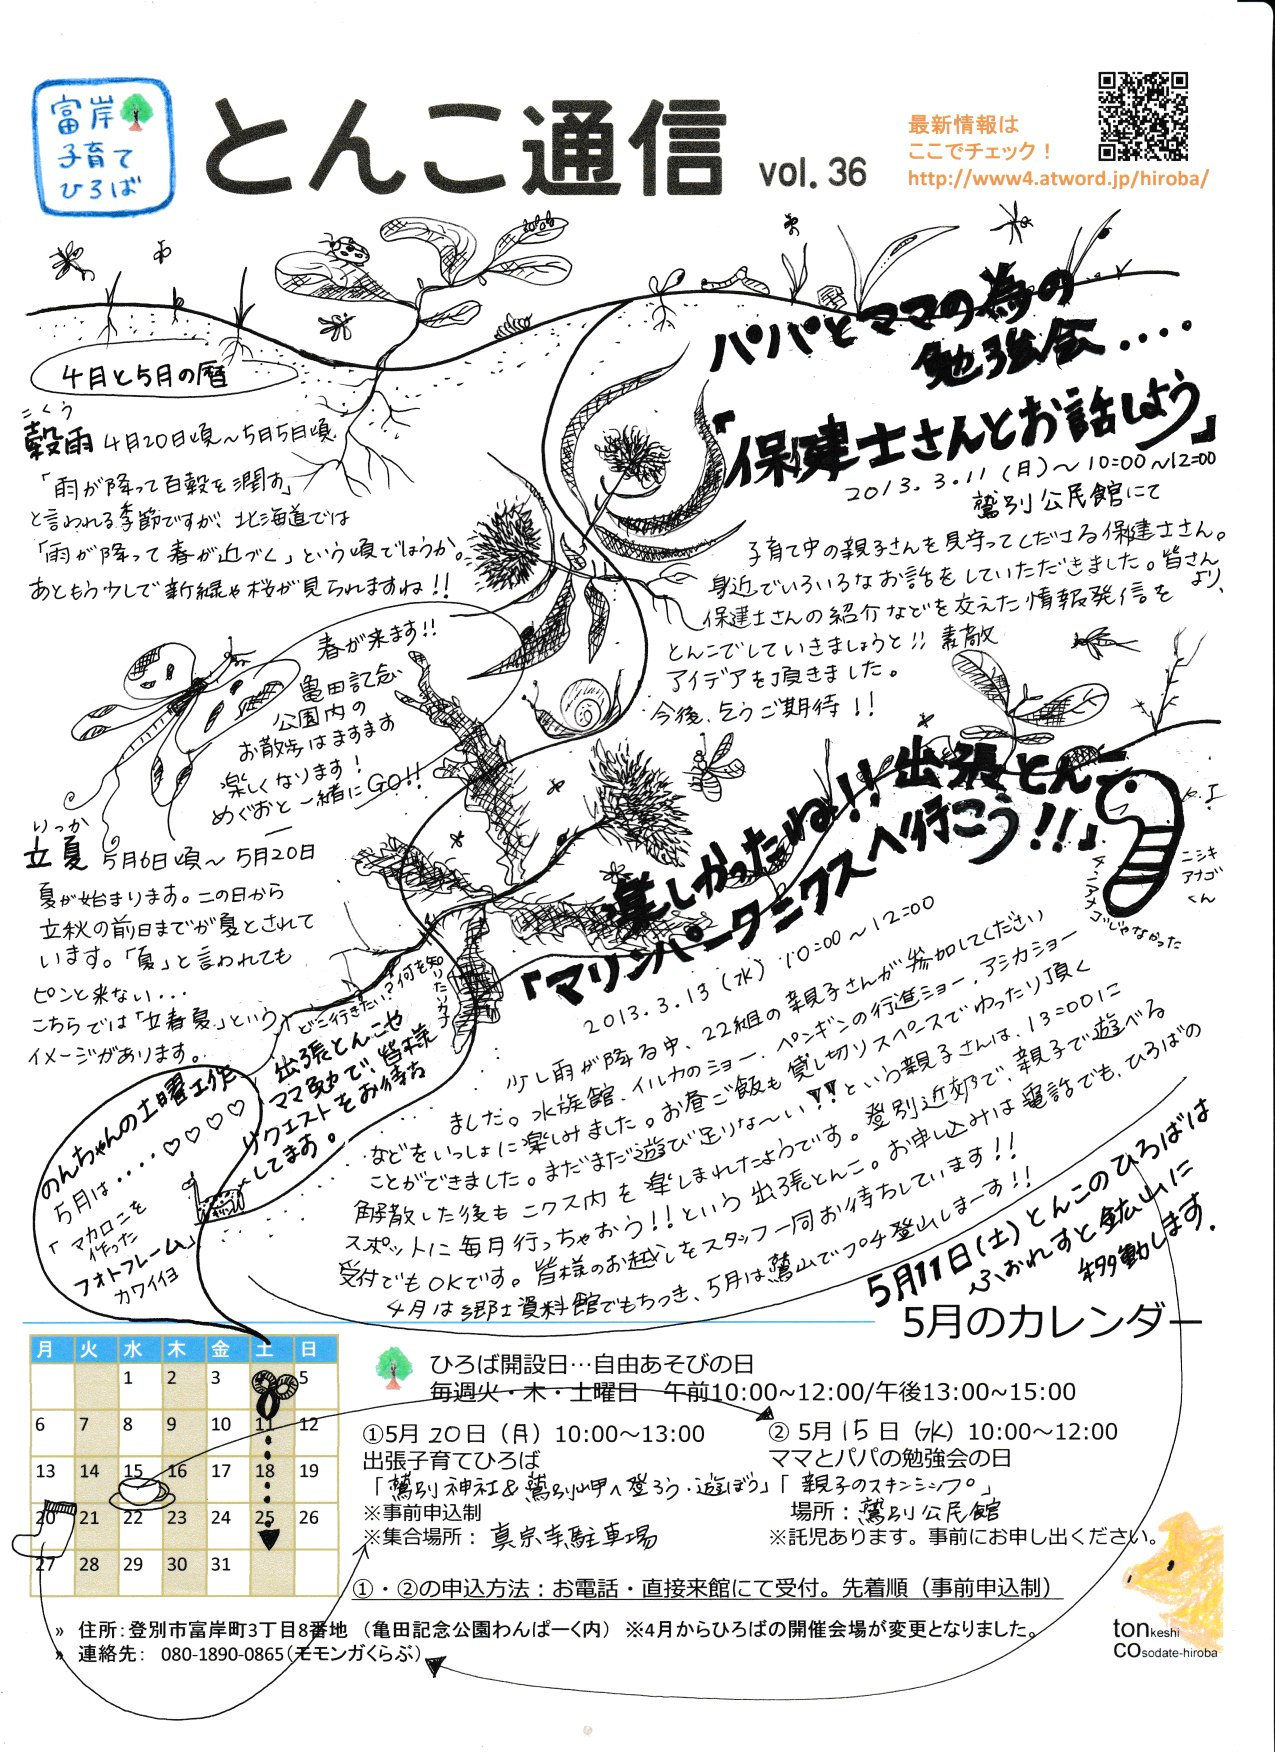 富岸
子育て
ひろば
とんこ通信 vol. 36
最新情報は
ここでチェック！
http://www4.atword.jp/hiroba/
4月と5月の暦
こくう
穀雨 4月20日頃～5月5日頃
「雨が降って百穀を潤す」
と言われる季節ですが、北海道では
「雨が降って春が近づく」という頃でしょうか。
あともう少しで新緑や桜が見られますね!!
春が来ます!!
亀田記念
公園内の
お散歩はますます
楽しくなります!
めぐおと一緒にGO!!
りっか
立夏 5月6日頃～5月20日
夏が始まります。この日から
立秋の前日までが夏とされて
います。「夏」と言われても
ピンと来ない...
こちらでは「立春夏」という
イメージがあります。
パパとママの為の
勉強会....
「保健士さんとお話しよう」
2013.3.11(月)～10:00～12:00
鷲別公民館にて
子育て中の親子さんを見守ってくださる保健士さん。
身近でいろいろなお話をしていただきました。皆さん
より、
保健士さんの紹介などを交えた情報発信を
とんこでしていきましょうと!! 素敵
アイデアを頂きました。
今後、乞うご期待!!
楽しかったね!!出張とんこ
「マリンパークニクスへ行こう!!」
ニシキ
アナゴ
くん
2013.3.13(水) 10:00～12:00
少し雨が降る中、22組の親子さんが参加してください
ました。水族館、イルカのショー、ペンギンの行進ショー、アシカショー
などをいっしょに楽しみました。お昼ご飯も貸し切りスペースでゆったり頂く
ことができました。まだまだ遊び足りな～い!!という親子さんは、13:00に
解散した後もニクス内を楽しまれたようです。登別近郊で、親子で遊べる
スポットに毎月行っちゃおう!!という出張とんこ。お申し込みは電話でも、ひろばの
受付でもOKです。皆様のお越しをスタッフ一同お待ちしています!!
4月は郷土資料館でもちつき、5月は鷲山でプチ登山しまーす!!
どこ行きたい?何を知りたい?
出張とんこや
ママ勉で、皆様
リクエストをお待ち
してます。
のんちゃんの土曜工作
5月は....♡♡♡♡
「マカロニを
作った
フォトフレーム」
カワイイヨ
5月11日(土)とんこのひろばは
ふぉれすと鉱山に
移動します.
5月のカレンダー
月 火 水 木 金 土 日
1 2 3 5
6 7 8 9 10 11 12
13 14 15 16 17 18 19
20 21 22 23 24 25 26
27 28 29 30 31
ひろば開設日…自由あそびの日
毎週火・木・土曜日　午前10:00～12:00/午後13:00～15:00
①5月20日（月）10:00～13:00
出張子育てひろば
「鷲別神社&鷲別岬へ登ろう・遊ぼう」
※事前申込制
※集合場所：真宗寺駐車場
② 5月15日（水）10:00～12:00
ママとパパの勉強会の日
「親子のスキンシップ」
場所：鷲別公民館
※託児あります。事前にお申し出ください。
①・②の申込方法：お電話・直接来館にて受付。先着順（事前申込制）
» 住所：登別市富岸町3丁目8番地 （亀田記念公園わんぱーく内） ※4月からひろばの開催会場が変更となりました。
» 連絡先： 080-1890-0865（モモンガくらぶ）
tonkeshi
COsodate-hiroba